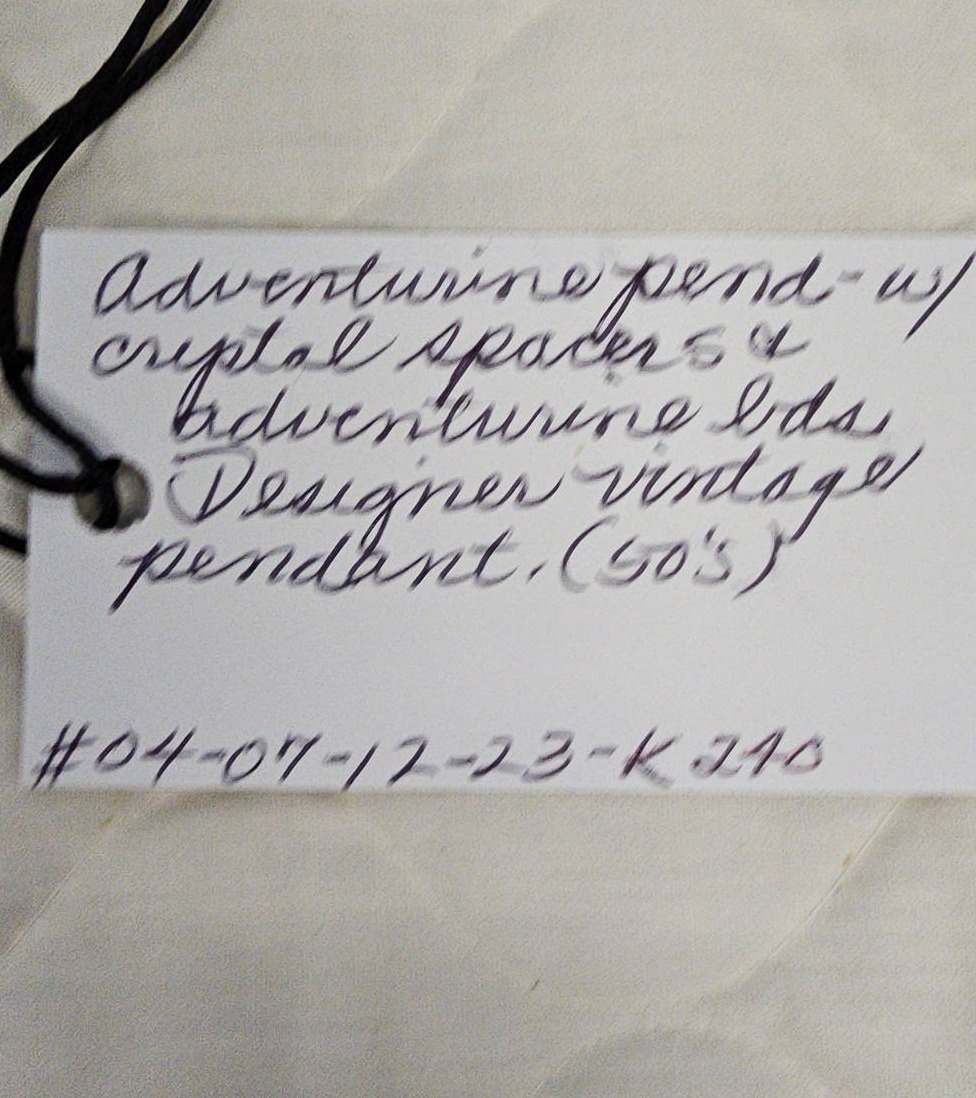 Adventurine pend- w/
crystal spacers &
adventurine bds
Designer vintage
pendant. (50's)
#04-07-12-23-K 240